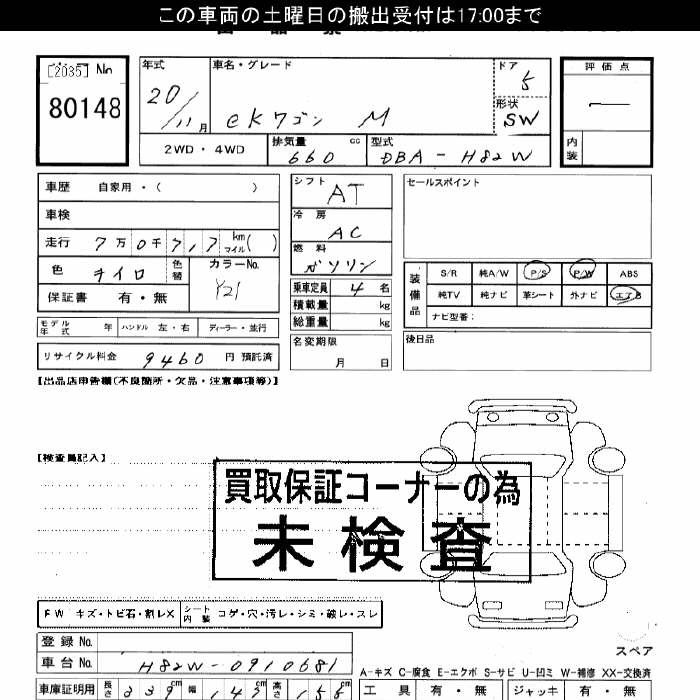 この車両の土曜日の搬出受付は17:00まで
[2035] No
80148
年式
20/11月
車名・グレード
eKワゴン M
ドア
5
形状
SW
評価点
内装
2WD・4WD
排気量 660 cc
型式 DBA-H82W
車歴 自家用・( )
車検
走行 7万0千717 km マイル( )
色 キイロ
色替
カラーNo. Y21
保証書 有・無
モデル年式 年 ハンドル 左・右 ディーラー・並行
リサイクル料金 9460 円 預託済
シフト
AT
冷房
AC
燃料
ガソリン
乗車定員 4 名
積載量 kg
総重量 kg
名変期限
月 日
セールスポイント
装備品
S/R 純A/W P/S P/W ABS
純TV 純ナビ 革シート 外ナビ エアB
ナビ型番:
後日品
【出品店申告欄(不良箇所・欠品・注意事項等)】
【検査員記入】
買取保証コーナーの為
未検査
FW キズ・トビ石・割レX
シート内装 コゲ・穴・汚レ・シミ・破レ・スレ
登録No.
車台No. H82W-0910681
スペア
A-キズ C-腐食 E-エクボ S-サビ U-凹ミ W-補修 XX-交換済
車庫証明用 長さ 339cm 幅 147cm 高さ 155cm
工具 有・無 ジャッキ 有・無